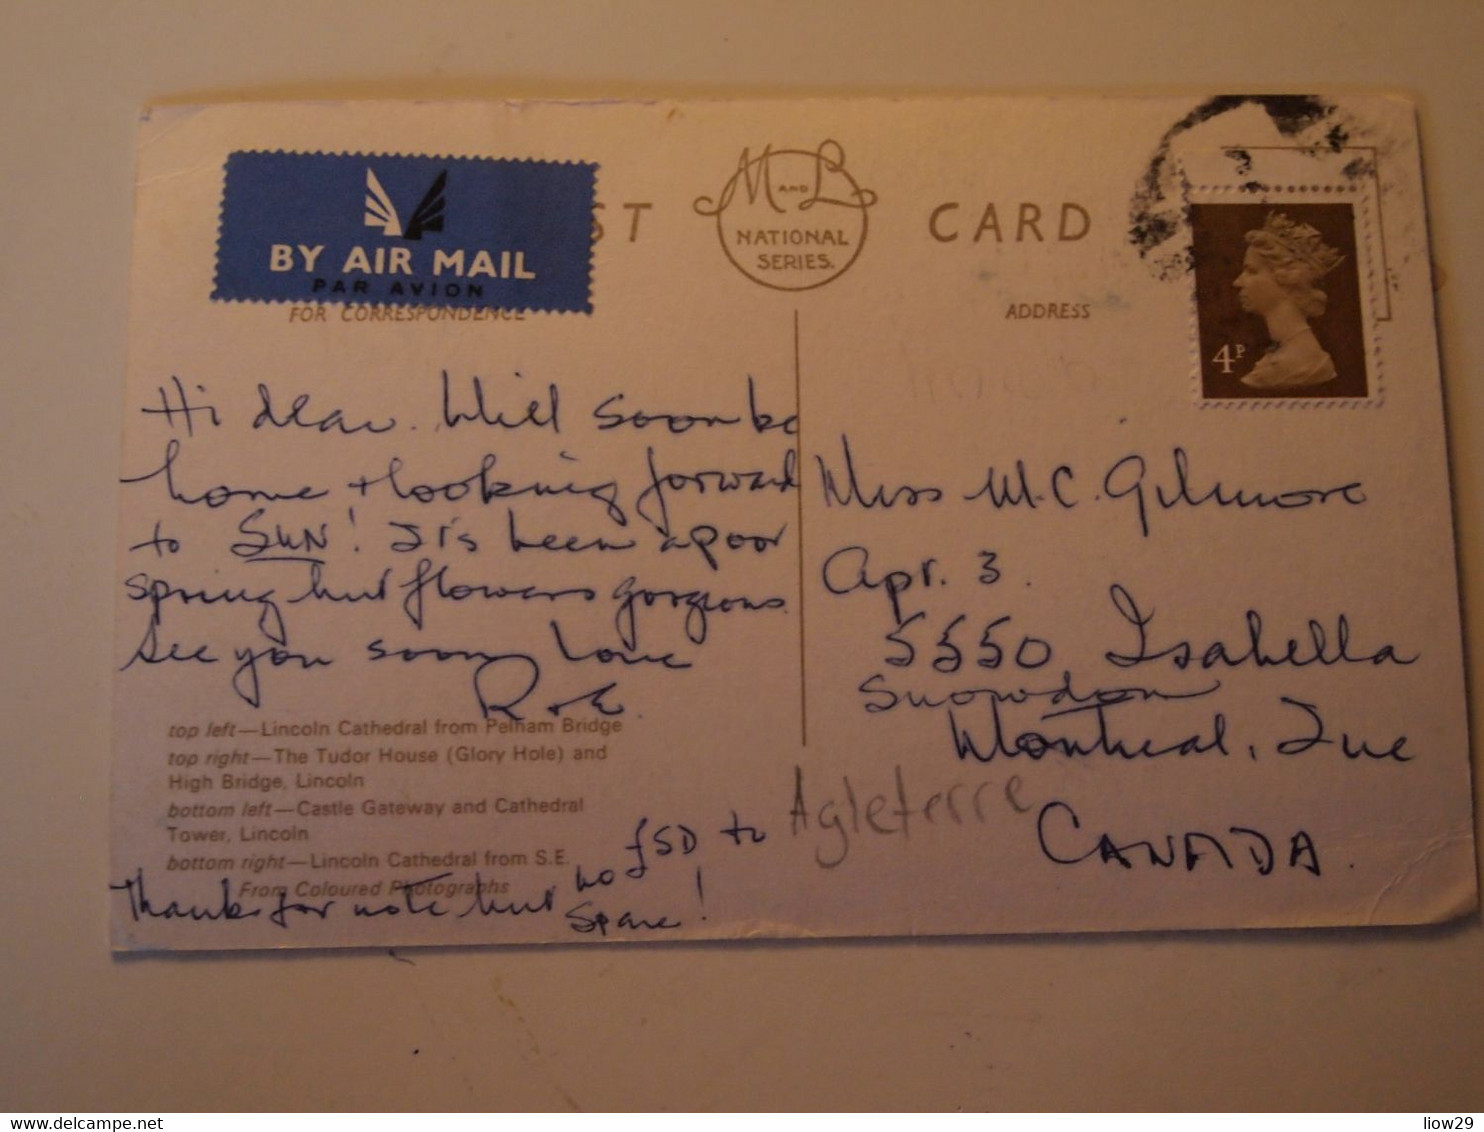 BY AIR MAIL
PAR AVION
ST CARD
M AND L
NATIONAL
SERIES.
FOR CORRESPONDENCE
ADDRESS
4P
Hi dear. Will soon be
home + looking forward
to SUN! It's been a poor
spring but flowers gorgeous.
See you soon Love
top left—Lincoln Cathedral from Pelham Bridge
top right—The Tudor House (Glory Hole) and
High Bridge, Lincoln
bottom left—Castle Gateway and Cathedral
Tower, Lincoln
bottom right—Lincoln Cathedral from S.E.
From Coloured Photographs
Thanks for note but no £SD to
spare!
Miss M.C. Gilmore
Apr. 3.
5550 Isabella
Snowdon
Montreal, Que
CANADA.
Agleterre
delcampe.net
liow29